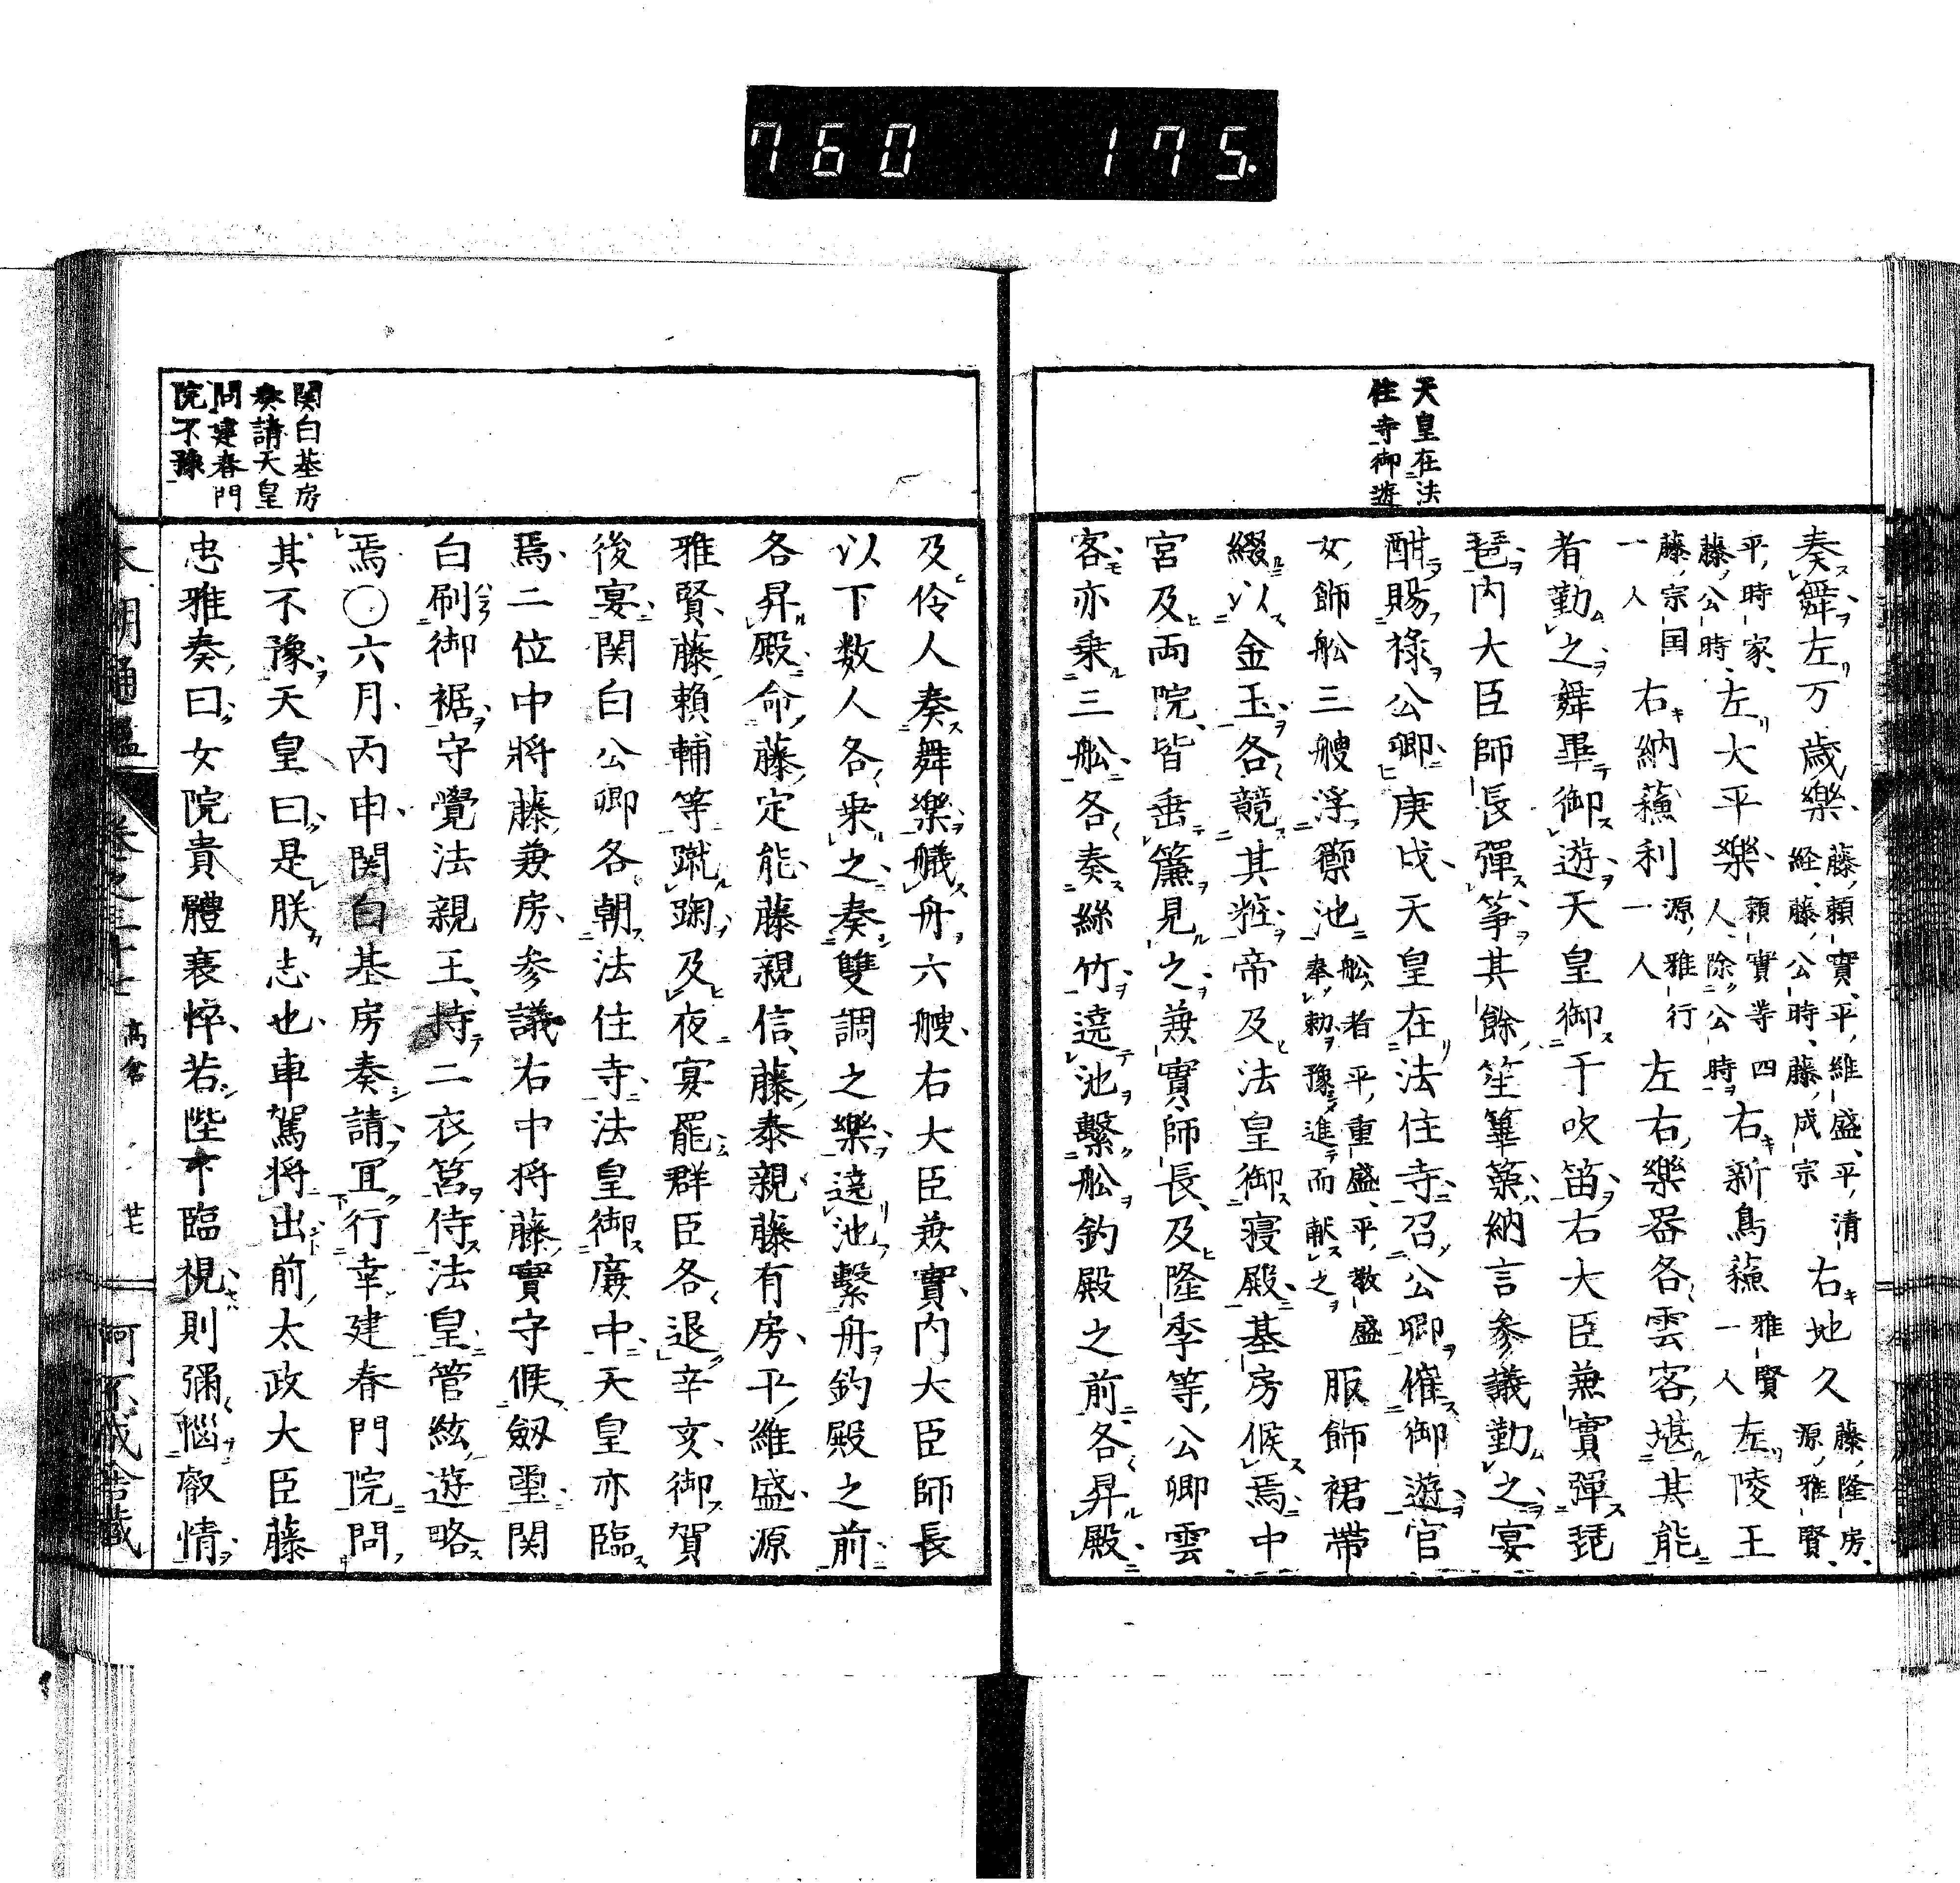 760 175.
天皇在法
住寺御遊
奏舞左万歳樂藤頼實、平維盛、平清経、藤公時、藤成宗右地久藤隆房、源雅賢、
平時家、藤公時、左大平樂頼實等四人、除公時右新鳥蘓雅賢一人左陵王
藤宗国一人右納蘓利源雅行一人左右樂器各雲客堪其能
者勤之舞畢御遊天皇御干吹笛右大臣兼實彈琵
琶内大臣師長彈筝其餘笙篳篥納言参議勤之宴
酣賜禄公卿庚戌天皇在法住寺召公卿催御遊官
女飾舩三艘浮藥池舩者平重盛、平教盛奉勅豫進而献之服飾裙帯
綴以金玉各競其粧帝及法皇御寝殿基房候焉中
宮及両院皆垂簾見之兼實師長及隆季等公卿雲
客亦乗三舩各奏絲竹遶池繋舩釣殿之前各昇殿
及伶人奏舞樂艤舟六艘右大臣兼實内大臣師長
以下数人各乗之奏雙調之樂遶池繋舟釣殿之前
各昇殿命藤定能藤親信藤泰親藤有房平維盛源
雅賢藤頼輔等蹴踘及夜宴罷群臣各退辛亥御賀
後宴関白公卿各朝法住寺法皇御廉中天皇亦臨
焉二位中將藤兼房参議右中将藤實守候劔璽関
白刷御裾守覺法親王持二衣筥侍法皇管絃遊略
焉〇六月丙申関白基房奏請冝行幸建春門院問
其不豫天皇曰是朕志也車駕将出前太政大臣藤
忠雅奏曰女院貴體衰悴若陛下臨視則彌惱叡情
関白基房
奏請天皇
問建春門
院不豫
本朝通鑑 卷之三十七 高倉 廿七